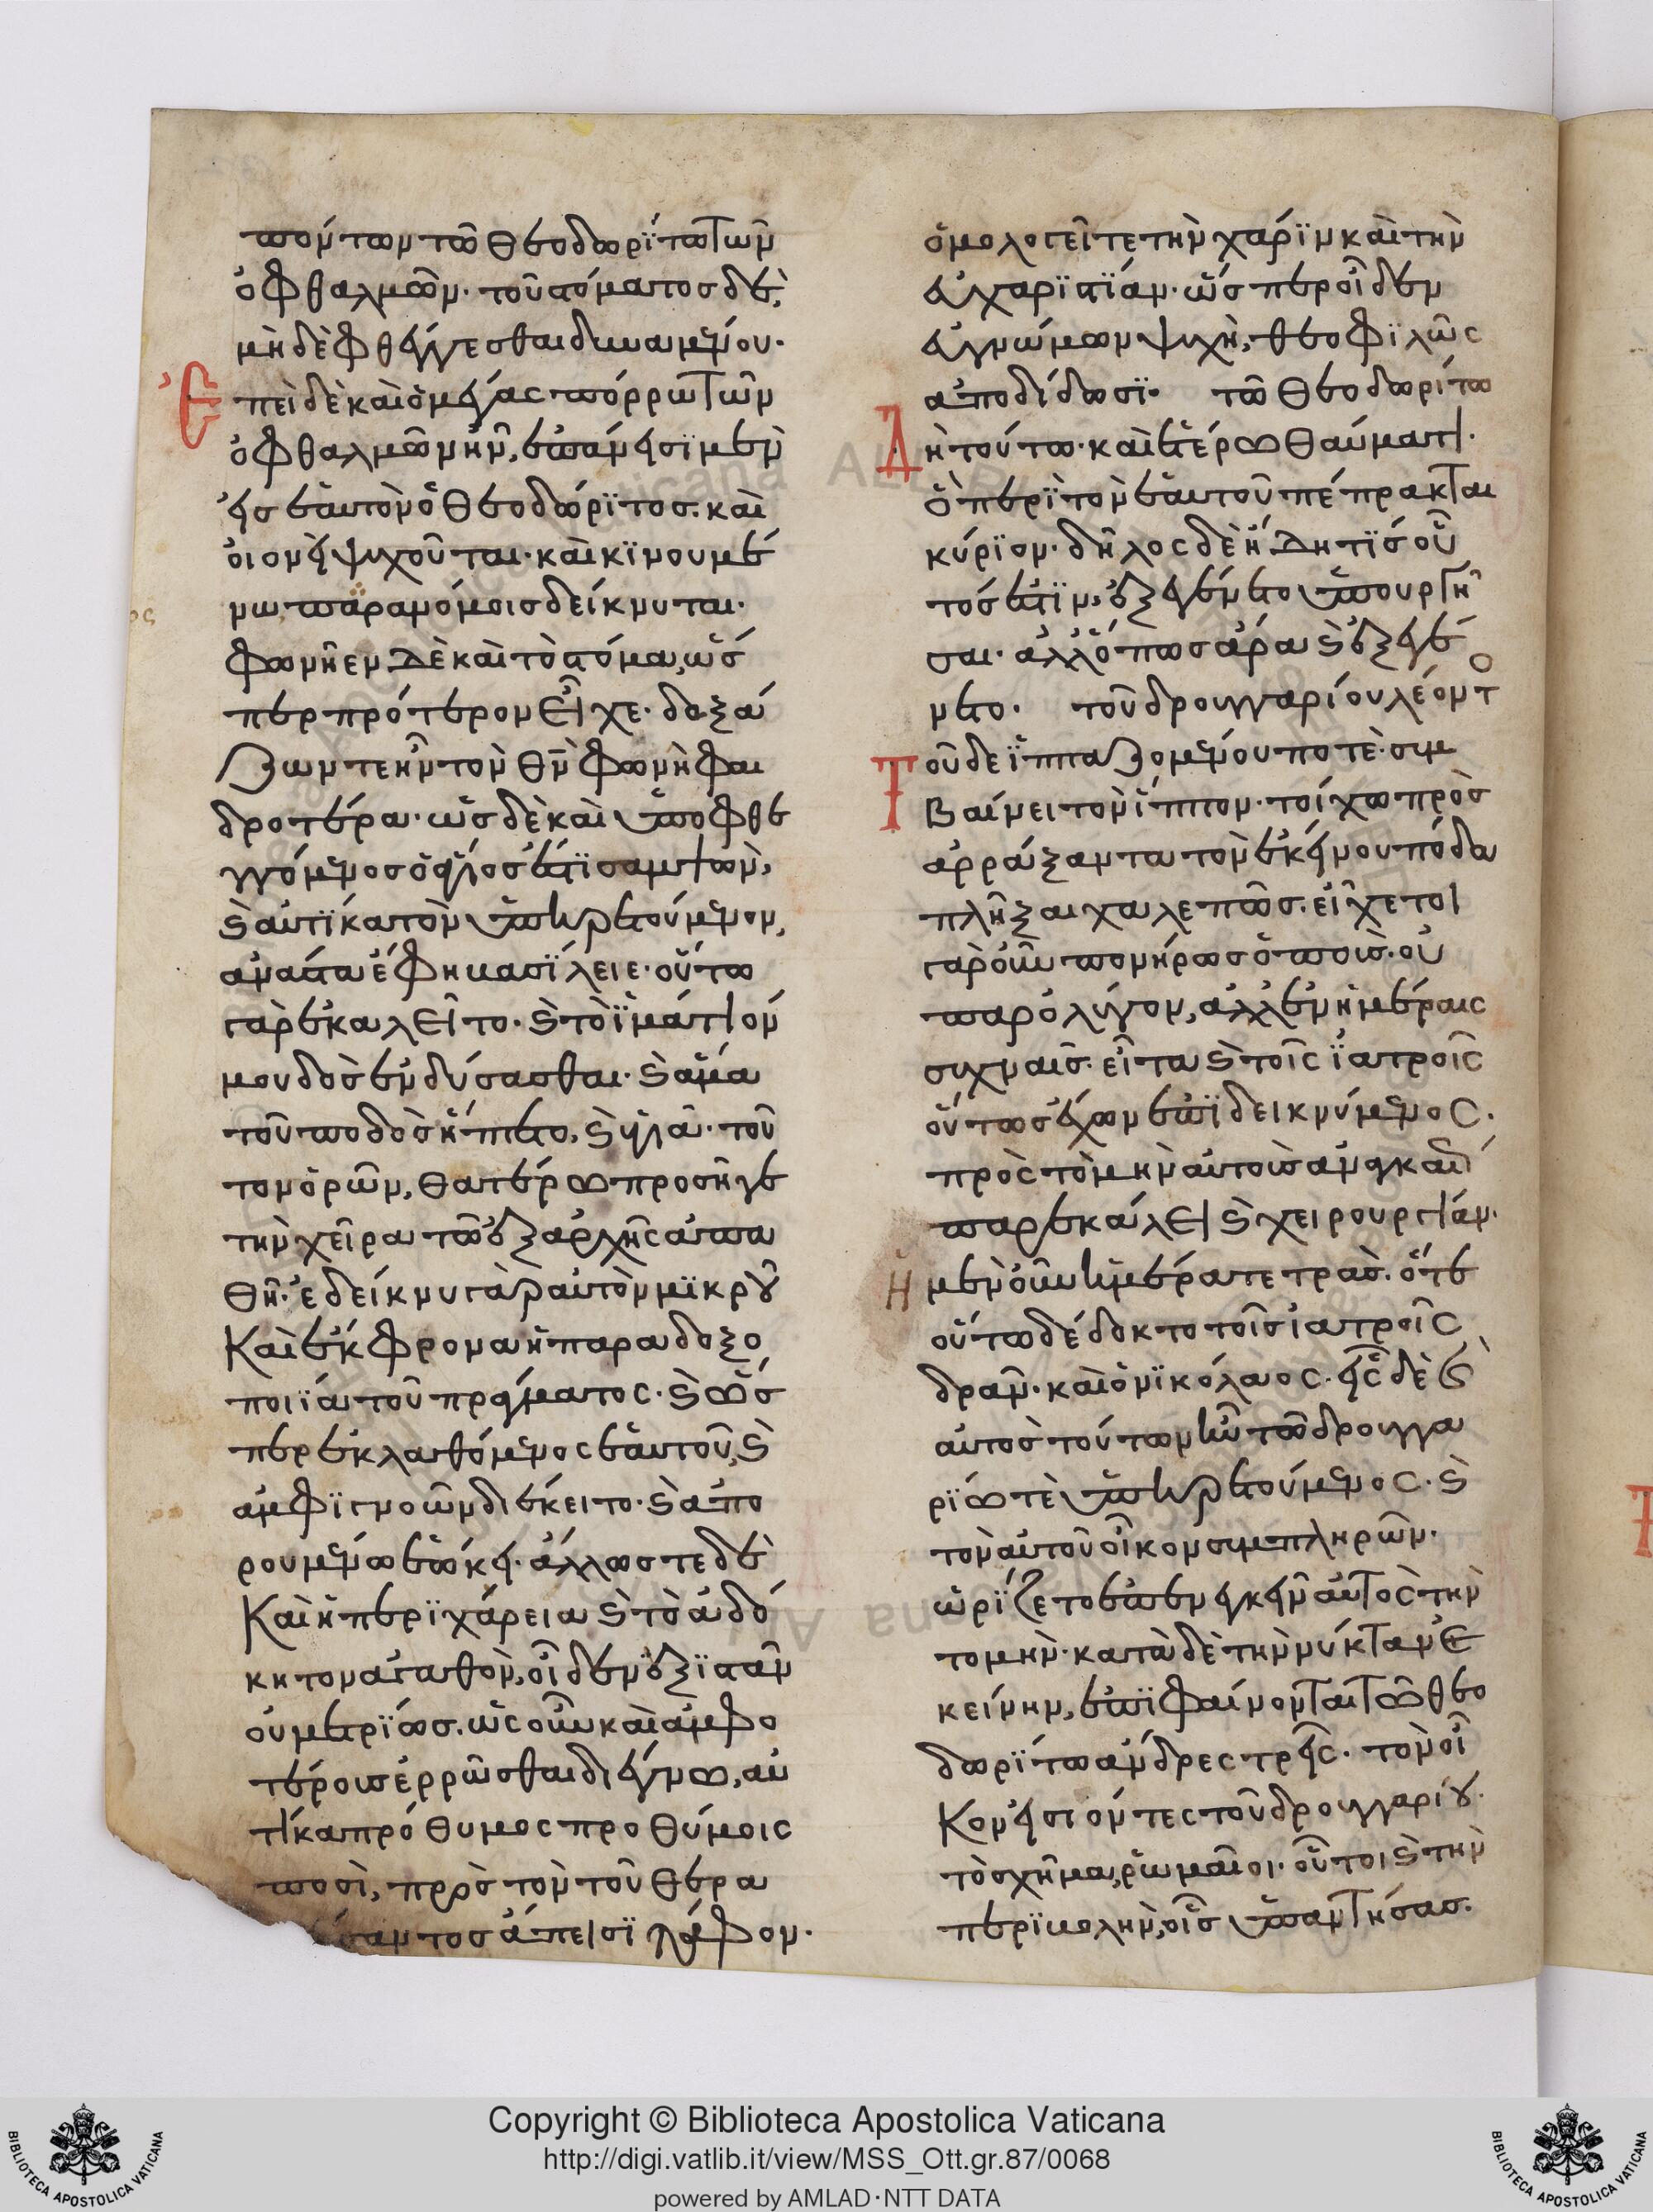 πόντων τῶ Θεοδωρίτω τῶν
ὀφθαλμῶν· τοῦ στόματος δὲ,
μὴ δὲ φθέγγεσθαι δυναμένου·
Ἐπεὶ δὲ καὶ ὁ μείας πόρρω τῶν
ὀφθαλμῶν ἦν, ἐπάνεισι μὲν
εἰς ἑαυτὸν ὁ Θεοδώριτος. καὶ
οἱονεὶ ψυχοῦται· καὶ κινουμέ
νω παραμόνοις δείκνυται·
φωνῆεν δὲ καὶ τὸ στόμα, ὥς
περ πρότερον εἶχε· δοξά
ζων τε ἦν τὸν θν̅ φωνὴ φαι
δροτέρα· ὡς δὲ καὶ ὑποφθε
γγόμενος ὁ
καὶ αὐτίκα τὸν ὑπηρετούμενον,
ἀνάστα ἔφη βασίλειε· οὕτω
γὰρ ἐκαλεῖτο· καὶ τὸ ἱμάτιόν
μου δὸς ἐνδύσασθαι· καὶ ἅμα
τοῦ ποδὸς ἥπτετο, καὶ ὑγιᾶ· τοῦ
τον ὁρῶν, θατέρω προσῆγε
τὴν χεῖρα τῶ ἐξ ἀρχῆς ἀπα
θῆ· ἐδείκνυ γὰρ αὐτὸν μικροῦ
Καὶ ἔκφρονα ἡ παραδοξο
ποιία τοῦ πράγματος· καὶ ὥσ
περ ἐκλαθόμενος ἑαυτοῦ, καὶ
ἀμφιγνοῶν διέκειτο· καὶ ἀπο
ρουμένω ἐώκει· ἄλλως τε δὲ
Καὶ ἡ περιχάρεια καὶ τὸ ἀδό
κητον ἀγαθὸν, οἶδεν ἐξιστᾶν
οὐ μετρίως. ὡς οὖν καὶ ἀμφο
τέροις ἐρρῶσθαι διέγνω, αὐ
τίκα πρόθυμος προθύμοις
ποσὶ, πρὸς τὸν τοῦ θερα
ἄπεισι τάφον·
ὁμολογεῖτε τὴν χάριν καὶ τὴν
εὐχαριστίαν· ὥσπερ οἶδεν
εὐγνώμων ψυχὴ, θεοφιλῶς
ἀποδίδωσι· τῶ Θεοδωρίτω
Δὴ τούτω· καὶ ἑτέρω θαύματι·
ὃ περὶ τὸν ἑαυτοῦ πέπρακται
κύριον· δῆλος δὲ ἤδη τίς οὗ
τός ἐστιν, ἐξεγένετο ὑπουργῆ
σαι· ἀλλ' ὅπως ἄρα καὶ ἐξεγέ
νετο· τοῦ δρουγγαρίου λέοντο
Τοῦδε ἱππαζομένου ποτὲ· συμ
βαίνει τὸν ἵππον· τοίχω πρὸς
αρράξαντα τὸν ἐκείνου πόδα
πλῆξαι χαλεπῶς. εἶχε τοι
γαροῦν πονήρως ὁ ποῦς· οὐ
παρ' ὀλίγον, ἀλλ' ἐν ἡμέραις
συχναῖς. εἶτα καὶ τοῖς ἰατροῖς
οὕτως ἔχων ἐπιδεικνύμενος·
πρὸς τὸ μὴν αὐτοῖς ἀνάγκαι
παρεκάλει καὶ χειρουργίαν·
Ἦ μὲν οὖν ἡμέρα τετρὰς. ὅτε
οὕτω δέδοκτο τοῖς ἰατροῖς
δρᾶν· καὶ ὁ νικόλαος· εἷς δὲ
αὐτὸς τούτων ἦν τῶ δρουγγα
ρίω τὲ ὑπηρετούμενος· καὶ
τὸν αὐτοῦ οἶκον συμπληρῶν·
ὡρίζετο ἐπενεγκεῖν αὐτὸς τὴν
τομὴν· κατὰ δὲ τὴν νύκταν ἐ
κείνην, ἐπιφαίνονται τῶ θεο
δωρίτω ἄνδρες τρεῖς· τὸν οἶ
Κον εἰσιόντες τοῦ δρουγγαρίου·
τὸ σχῆμα, ῥωμαῖοι· οὗτοι καὶ τὴν
περιβολὴν, οἷς ὑπαντήσας·
Copyright © Biblioteca Apostolica Vaticana
http://digi.vatlib.it/view/MSS_Ott.gr.87/0068
powered by AMLAD·NTT DATA
BIBLIOTECA APOSTOLICA VATICANA
BIBLIOTECA APOSTOLICA VATICANA